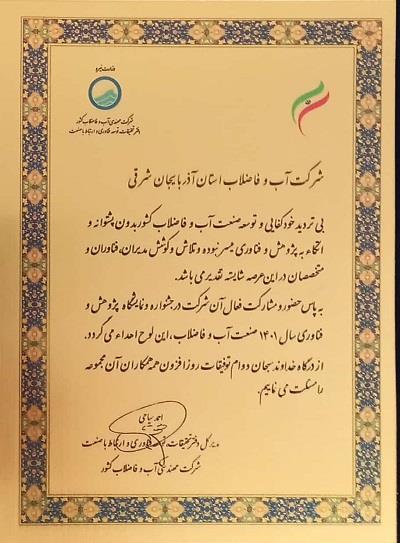 وزارت نیرو
شرکت مهندسی آب و فاضلاب کشور
دفتر تحقیقات، توسعه فناوری و ارتباط با صنعت
شرکت آب و فاضلاب استان آذربایجان شرقی
بی تردید خودکفایی و توسعه صنعت آب و فاضلاب کشور بدون پشتوانه و
اتکاء به پژوهش و فناوری میسر نبوده و تلاش و کوشش مدیران، فناوران و
متخصصان در این عرصه شایسته تقدیر می باشد.
به پاس حضور و مشارکت فعال آن شرکت در جشنواره و نمایشگاه پژوهش و
فناوری سال ۱۴۰۱ صنعت آب و فاضلاب، این لوح اهداء می گردد.
از درگاه خداوند سبحان دوام توفیقات روز افزون همه همکاران آن مجموعه
را مسئلت می نماییم.
احمد سیاحی
مدیر کل دفتر تحقیقات، توسعه فناوری و ارتباط با صنعت
شرکت مهندسی آب و فاضلاب کشور